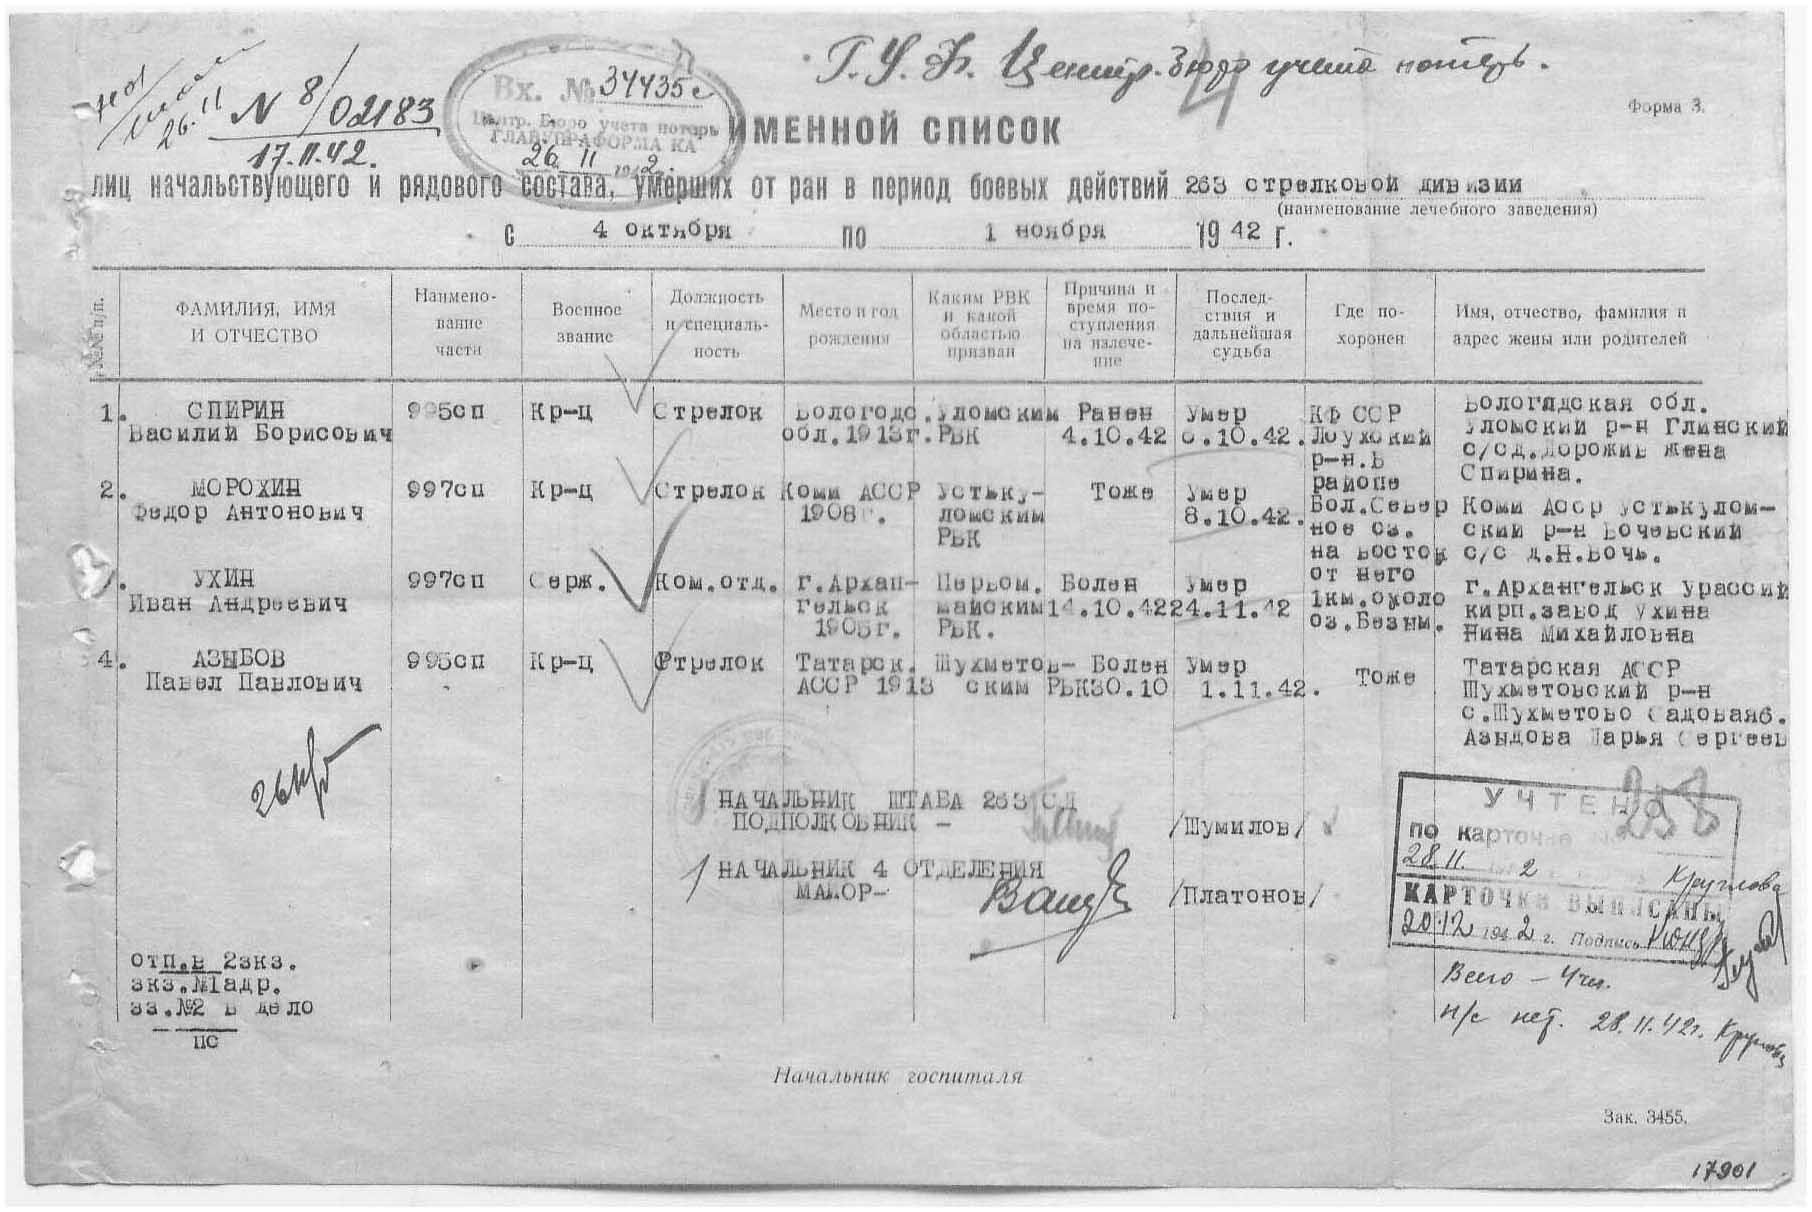 Г.У.Ф. Центр. Бюро учета потерь.
26.11
N 8/02183
17.11.42.
Вх. № 34435с
Центр. Бюро учета потерь
ГЛАВУПРАФОРМА КА
26 11 1942 г.
Форма 3.
ИМЕННОЙ СПИСОК
лиц начальствующего и рядового состава, умерших от ран в период боевых действий 263 стрелковой дивизии
(наименование лечебного заведения)
с 4 октября по 1 ноября 1942 г.
№№ п/п.
ФАМИЛИЯ, ИМЯ И ОТЧЕСТВО
Наимено-
вание
части
Военное
звание
Должность
и специаль-
ность
Место и год
рождения
Каким РВК
и какой
областью
призван
Причина и
время по-
ступления
на излече-
ние
Послед-
ствия и
дальнейшая
судьба
Где по-
хоронен
Имя, отчество, фамилия и
адрес жены или родителей
1. СПИРИН
Василий Борисович
995сп
Кр-ц
Стрелок
Вологодс.
обл.1913г.
Уломским
РВК
Ранен
4.10.42
Умер
6.10.42.
КФ ССР
Лоухский
р-н.В
районе
Бол.Север
ное оз.
на восток
от него
1км.около
оз.Безым.
Вологодская обл.
Уломский р-н Глинский
с/с д.Дорожив жена
Спирина.
2. МОРОХИН
Федор Антонович
997сп
Кр-ц
Стрелок
Коми АССР
1908г.
Устьку-
ломским
РВК
Тоже
Умер
8.10.42.
Коми АССР Устькулом-
ский р-н Вочевский
с/с д.Н.Вочь.
УХИН
Иван Андреевич
997сп
Серж.
Ком.отд.
г.Архан-
гельск
1905г.
Первом.
майским
РВК.
Болен
14.10.42
Умер
24.11.42
г.Архангельск Урассий
кирп.завод Ухина
Нина Михайловна
4. АЗЫБОВ
Павел Павлович
995сп
Кр-ц
Стрелок
Татарск.
АССР 1913
Шухметов-
ским РВК
Болен
30.10
Умер
1.11.42.
Тоже
Татарская АССР
Шухметовский р-н
с.Шухметово Садовая6.
Азыдова Дарья Сергеев
НАЧАЛЬНИК ШТАБА 263 СД
ПОДПОЛКОВНИК - /Шумилов/
НАЧАЛЬНИК 4 ОТДЕЛЕНИЯ
МАЙОР- /Платонов/
УЧТЕНО
258
по карточке
28.11. 2 Круглова
КАРТОЧКИ ВЫПИСАНЫ
20.12 1942 г. Подпись
Всего - 4 чел.
н/с нет. 28.11.42г. Круглова
отп.в 2экз.
экз.№1адр.
эз.№2 в дело
ПС
Начальник госпиталя
Зак. 3455.
17901